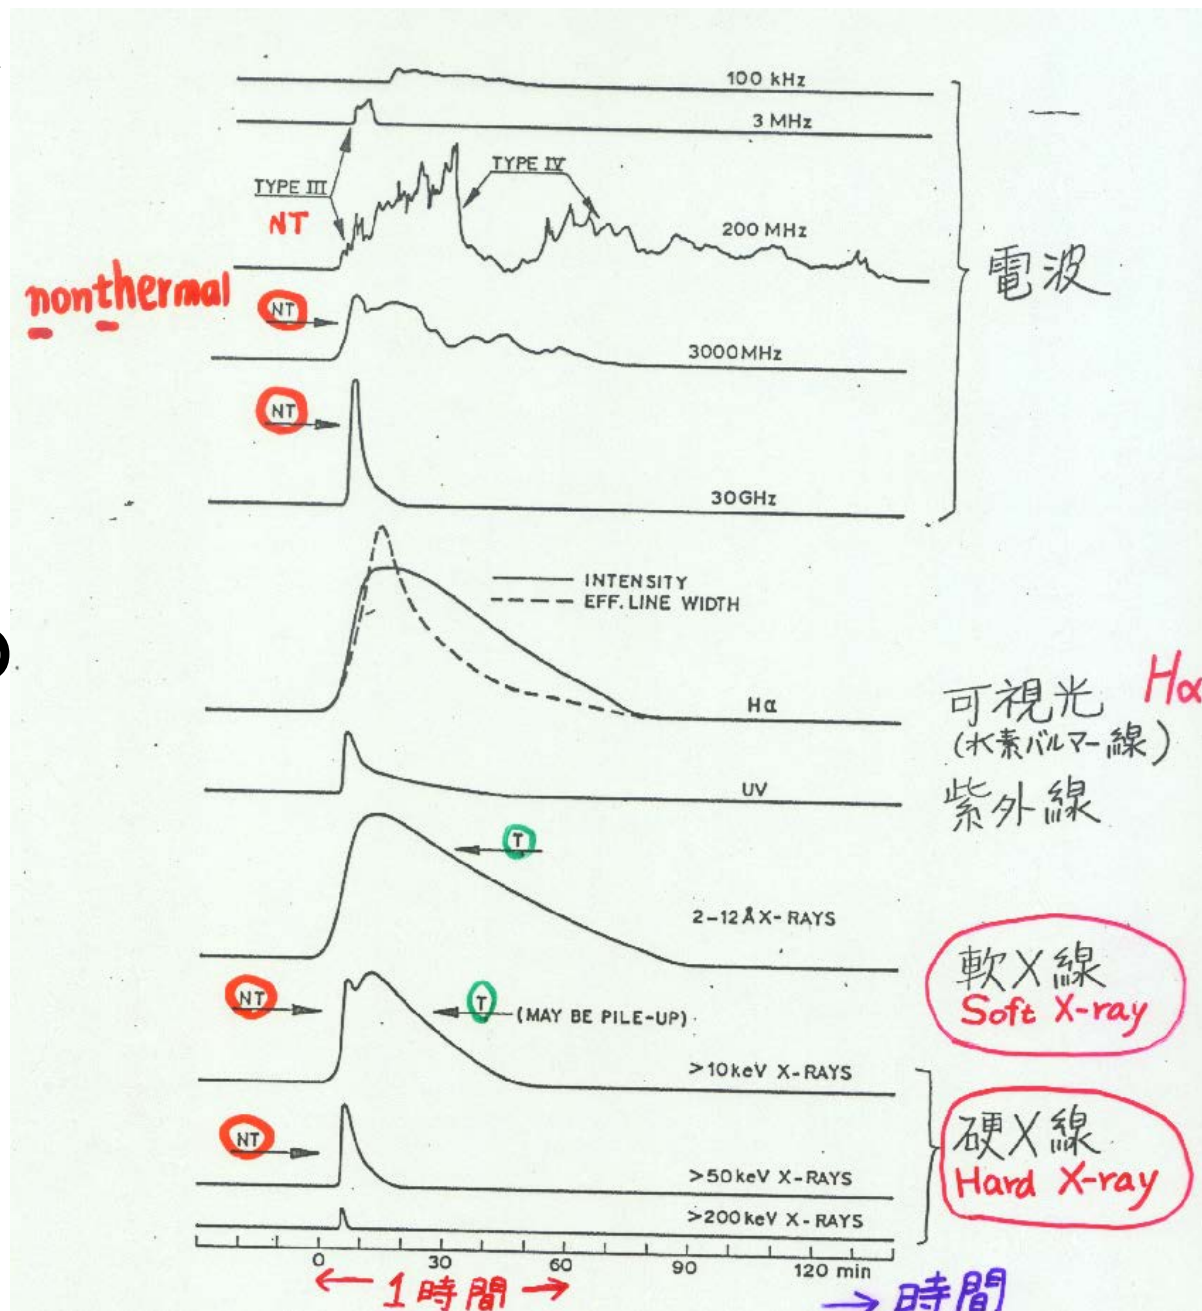 100 kHz
3 MHz
TYPE III
TYPE IV
NT
200 MHz
電波
nonthermal
NT
3000MHz
NT
30GHz
INTENSITY
EFF. LINE WIDTH
Hα
可視光 Hα
(水素バルマー線)
UV
紫外線
T
2-12Å X-RAYS
軟X線
Soft X-ray
NT
T (MAY BE PILE-UP)
>10keV X-RAYS
NT
硬X線
Hard X-ray
>50keV X-RAYS
>200keV X-RAYS
0 30 60 90 120 min
← 1時間 → → 時間